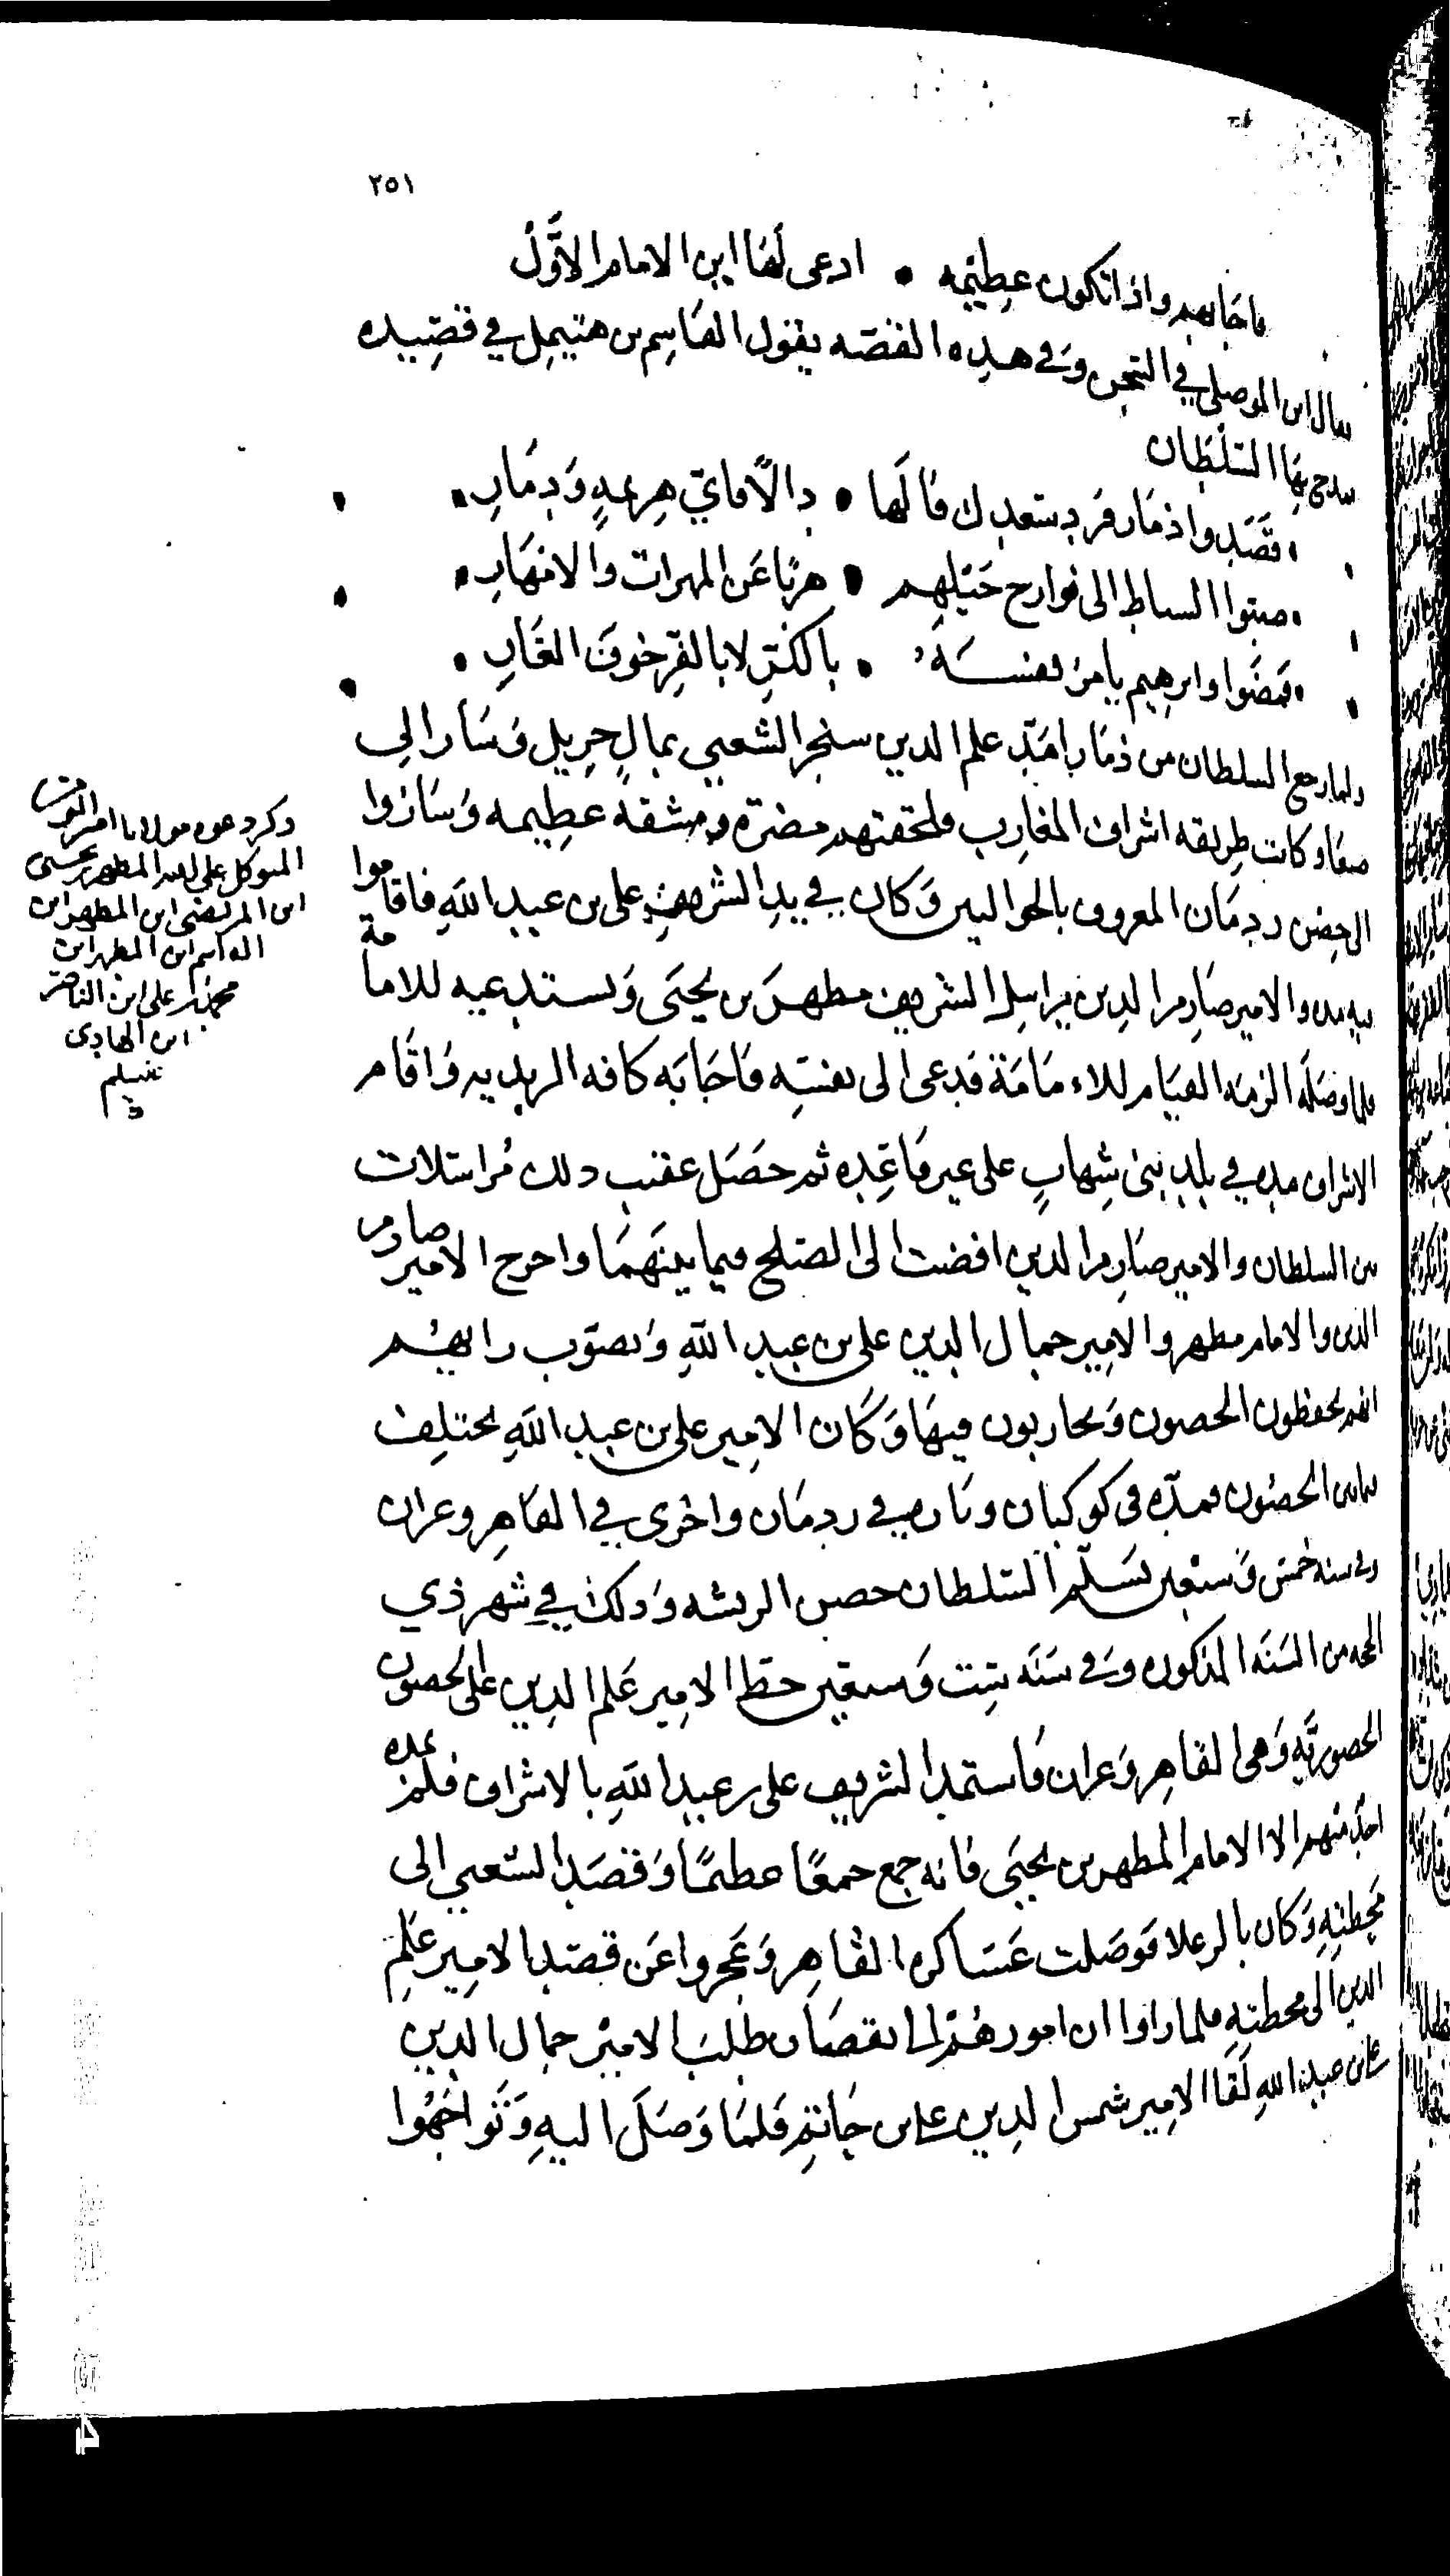 ٢٥١
فاجابهم واذا تكون عظيمه • ادعى لها ابن الامام الاول
ابن الموصلي في السجن وفي هذه القصه يقول القاسم بن هتيمل في قصيده
يمدح بها السلطان
• قصدوا ذمار فرد سعدك فالها • دالا فاي هزيمه وذمار •
السباط الى قوارح خيلهم • هربا عن المهرات والامهار •
• فمضوا وابرهيم يامر نفسه • بالكر لا بالفر خوف العار •
ولما رجع السلطان من ذمار امد علم الدين سنجر الشعبي بمال جزيل وسار الى
صنعا وكانت طريقه اشراف المغارب ولحقتهم مضرة ومشقة عظيمه وساروا
الى حصن ردمان المعروف وكان في يد الشريف علي بن عبد الله فاقاموا
فيه مده والامير صارم الدين يراسل الشريف مطهر بن يحيى ويستدعيه للامامة
فلما وصله الزمه القيام للامامة فدعى الى نفسه فاجابه كافه الزيديه واقام
الاشراف مده في بلد بني شهاب على غير قاعده ثم حصل عقيب ذلك مراسلات
بين السلطان والامير صارم الدين افضت الى الصلح فيما بينهما واخرج الامير صارم
الدين والامام مطهر والامير جمال الدين علي بن عبد الله وتصوب رايهم
انهم يحفظون الحصون ويحاربون فيها وكان الامير علي بن عبد الله يختلف
فيما بين الحصون فمده في كوكبان وتاره في ردمان واخرى في القاهر وعزان
وفي سنه خمس وسبعين تسلم السلطان حصن الريشه وذلك في شهر ذي
الحجه من السنه المذكوره وفي سنه ست وسبعين حط الامير علم الدين على الحصون
الحضوريه وهي القاهر وعزان فاستمد الشريف علي بن عبد الله بالاشراف فلم يمده
احد منهم الا الامام المطهر بن يحيى فانه جمع جمعا عظيما وقصد الشعبي الى
محطته وكان بالرعلا فوصلت عساكره القاهر وعجزوا عن قصد الامير علم
الدين الى محطته فلما راوا ان امورهم الى نقصان طلب الامير جمال الدين
علي بن عبد الله لقا الامير شمس الدين علي بن حاتم فلما وصل اليه وتواجهوا
ذكر دعوه مولانا امير المومنين
المتوكل على الله المطهر بن يحيى
ابن المرتضى ابن المطهر ابن
القاسم ابن المطهر ابن
محمد بن علي ابن الناصر
ابن الهادي